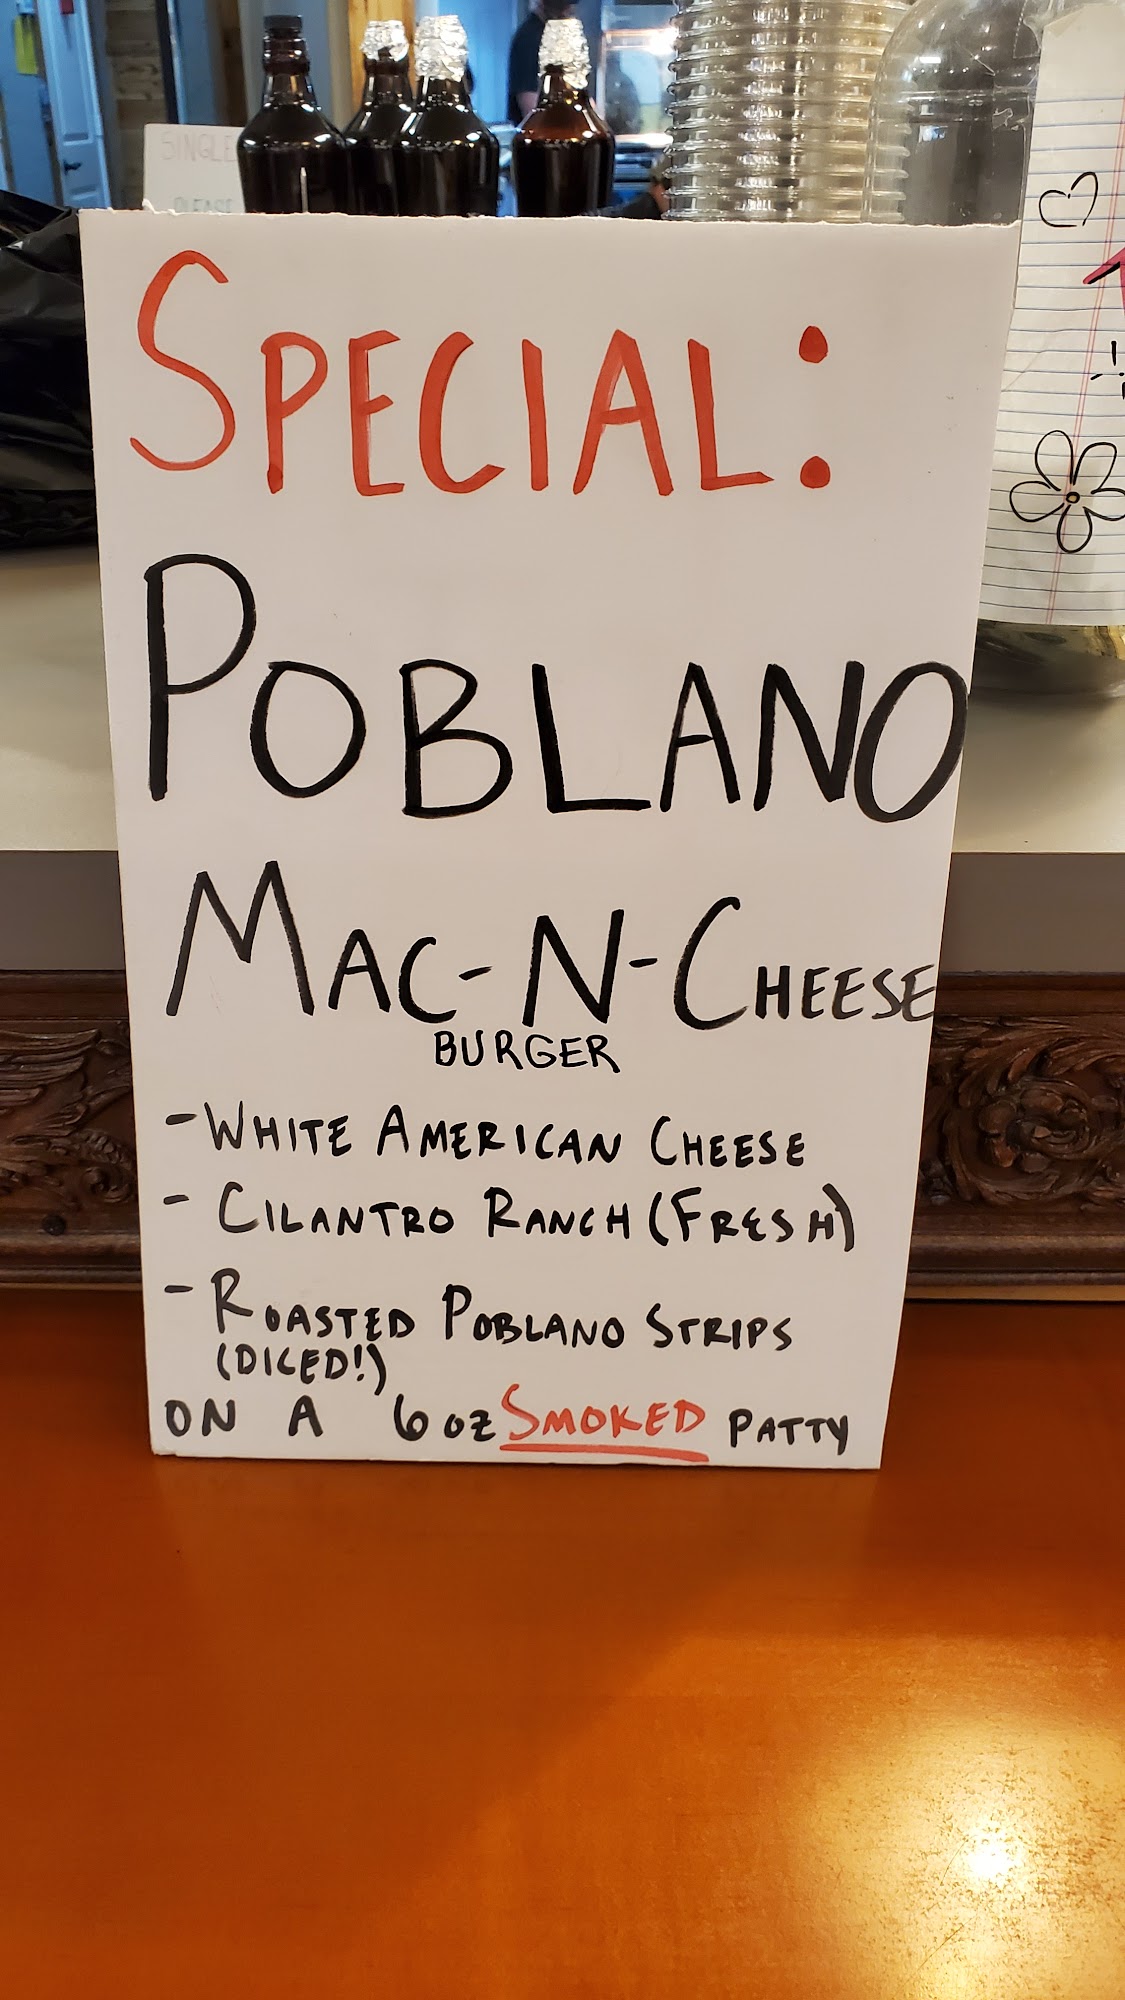 SINGLE
PLEASE
SPECIAL:
POBLANO
MAC-N-CHEESE
BURGER
- WHITE AMERICAN CHEESE
- CILANTRO RANCH (FRESH)
- ROASTED POBLANO STRIPS
(DICED!)
ON A 6 oz SMOKED PATTY